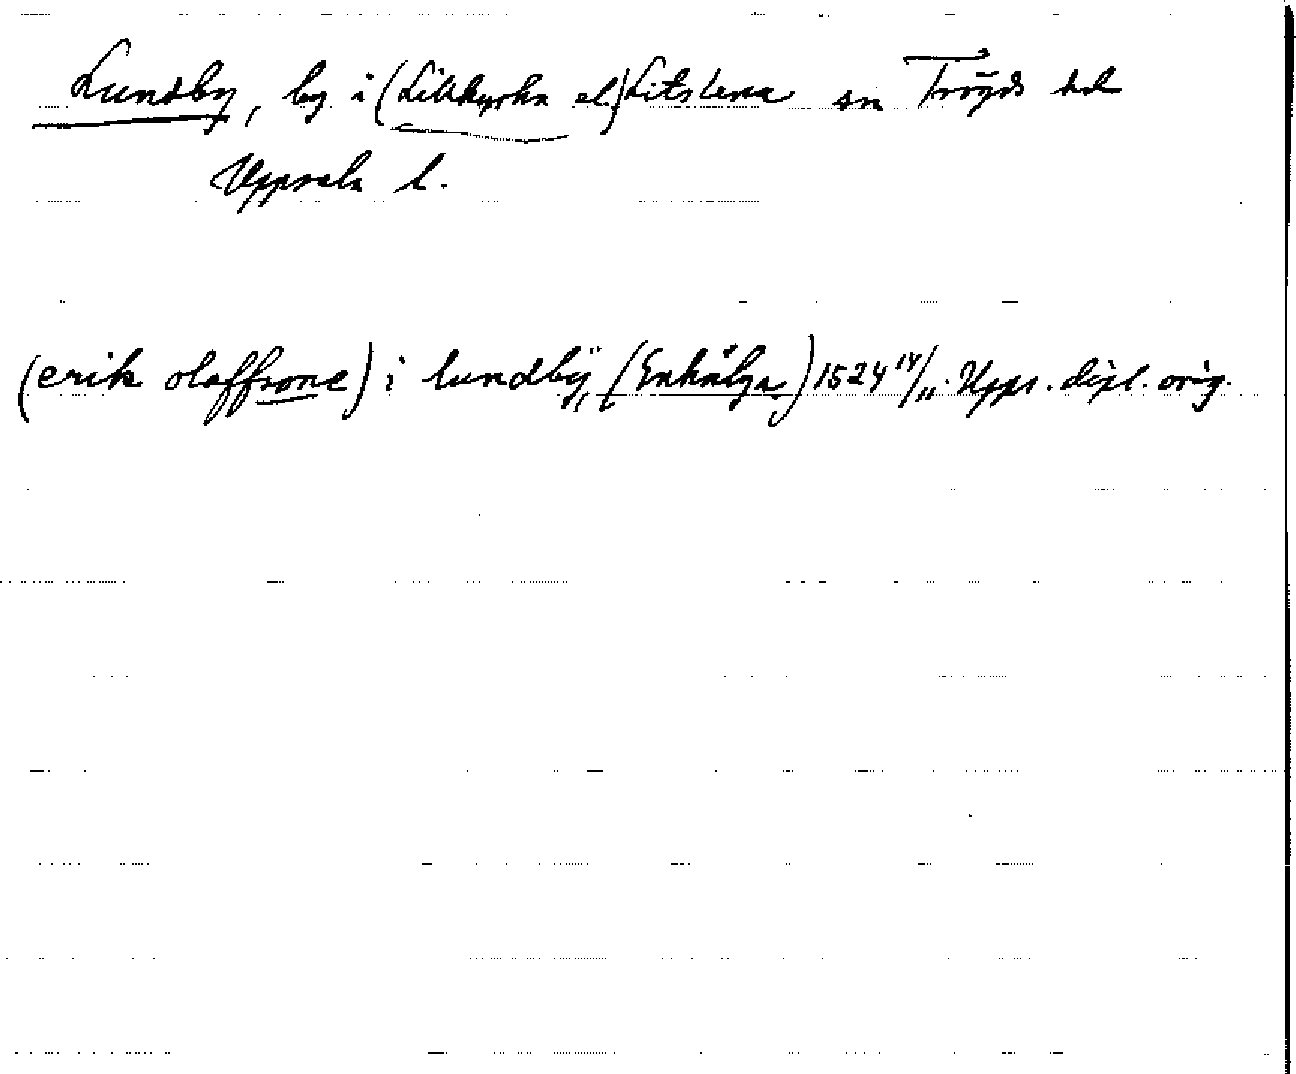 Lundby, by i (Lillkyrka el.) Litslena sn Trögds hd
Uppsala l.
(erik olaffsone) i lundbÿ, (Enhälga) 1524 14/11. Upps. dipl. orig.